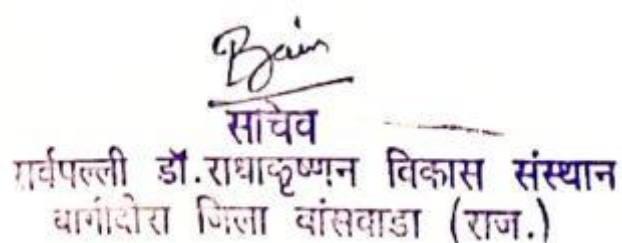 Bain
सचिव
सर्वपल्ली डॉ.राधाकृष्णन विकास संस्थान
बागीदोरा जिला बांसवाडा (राज.)